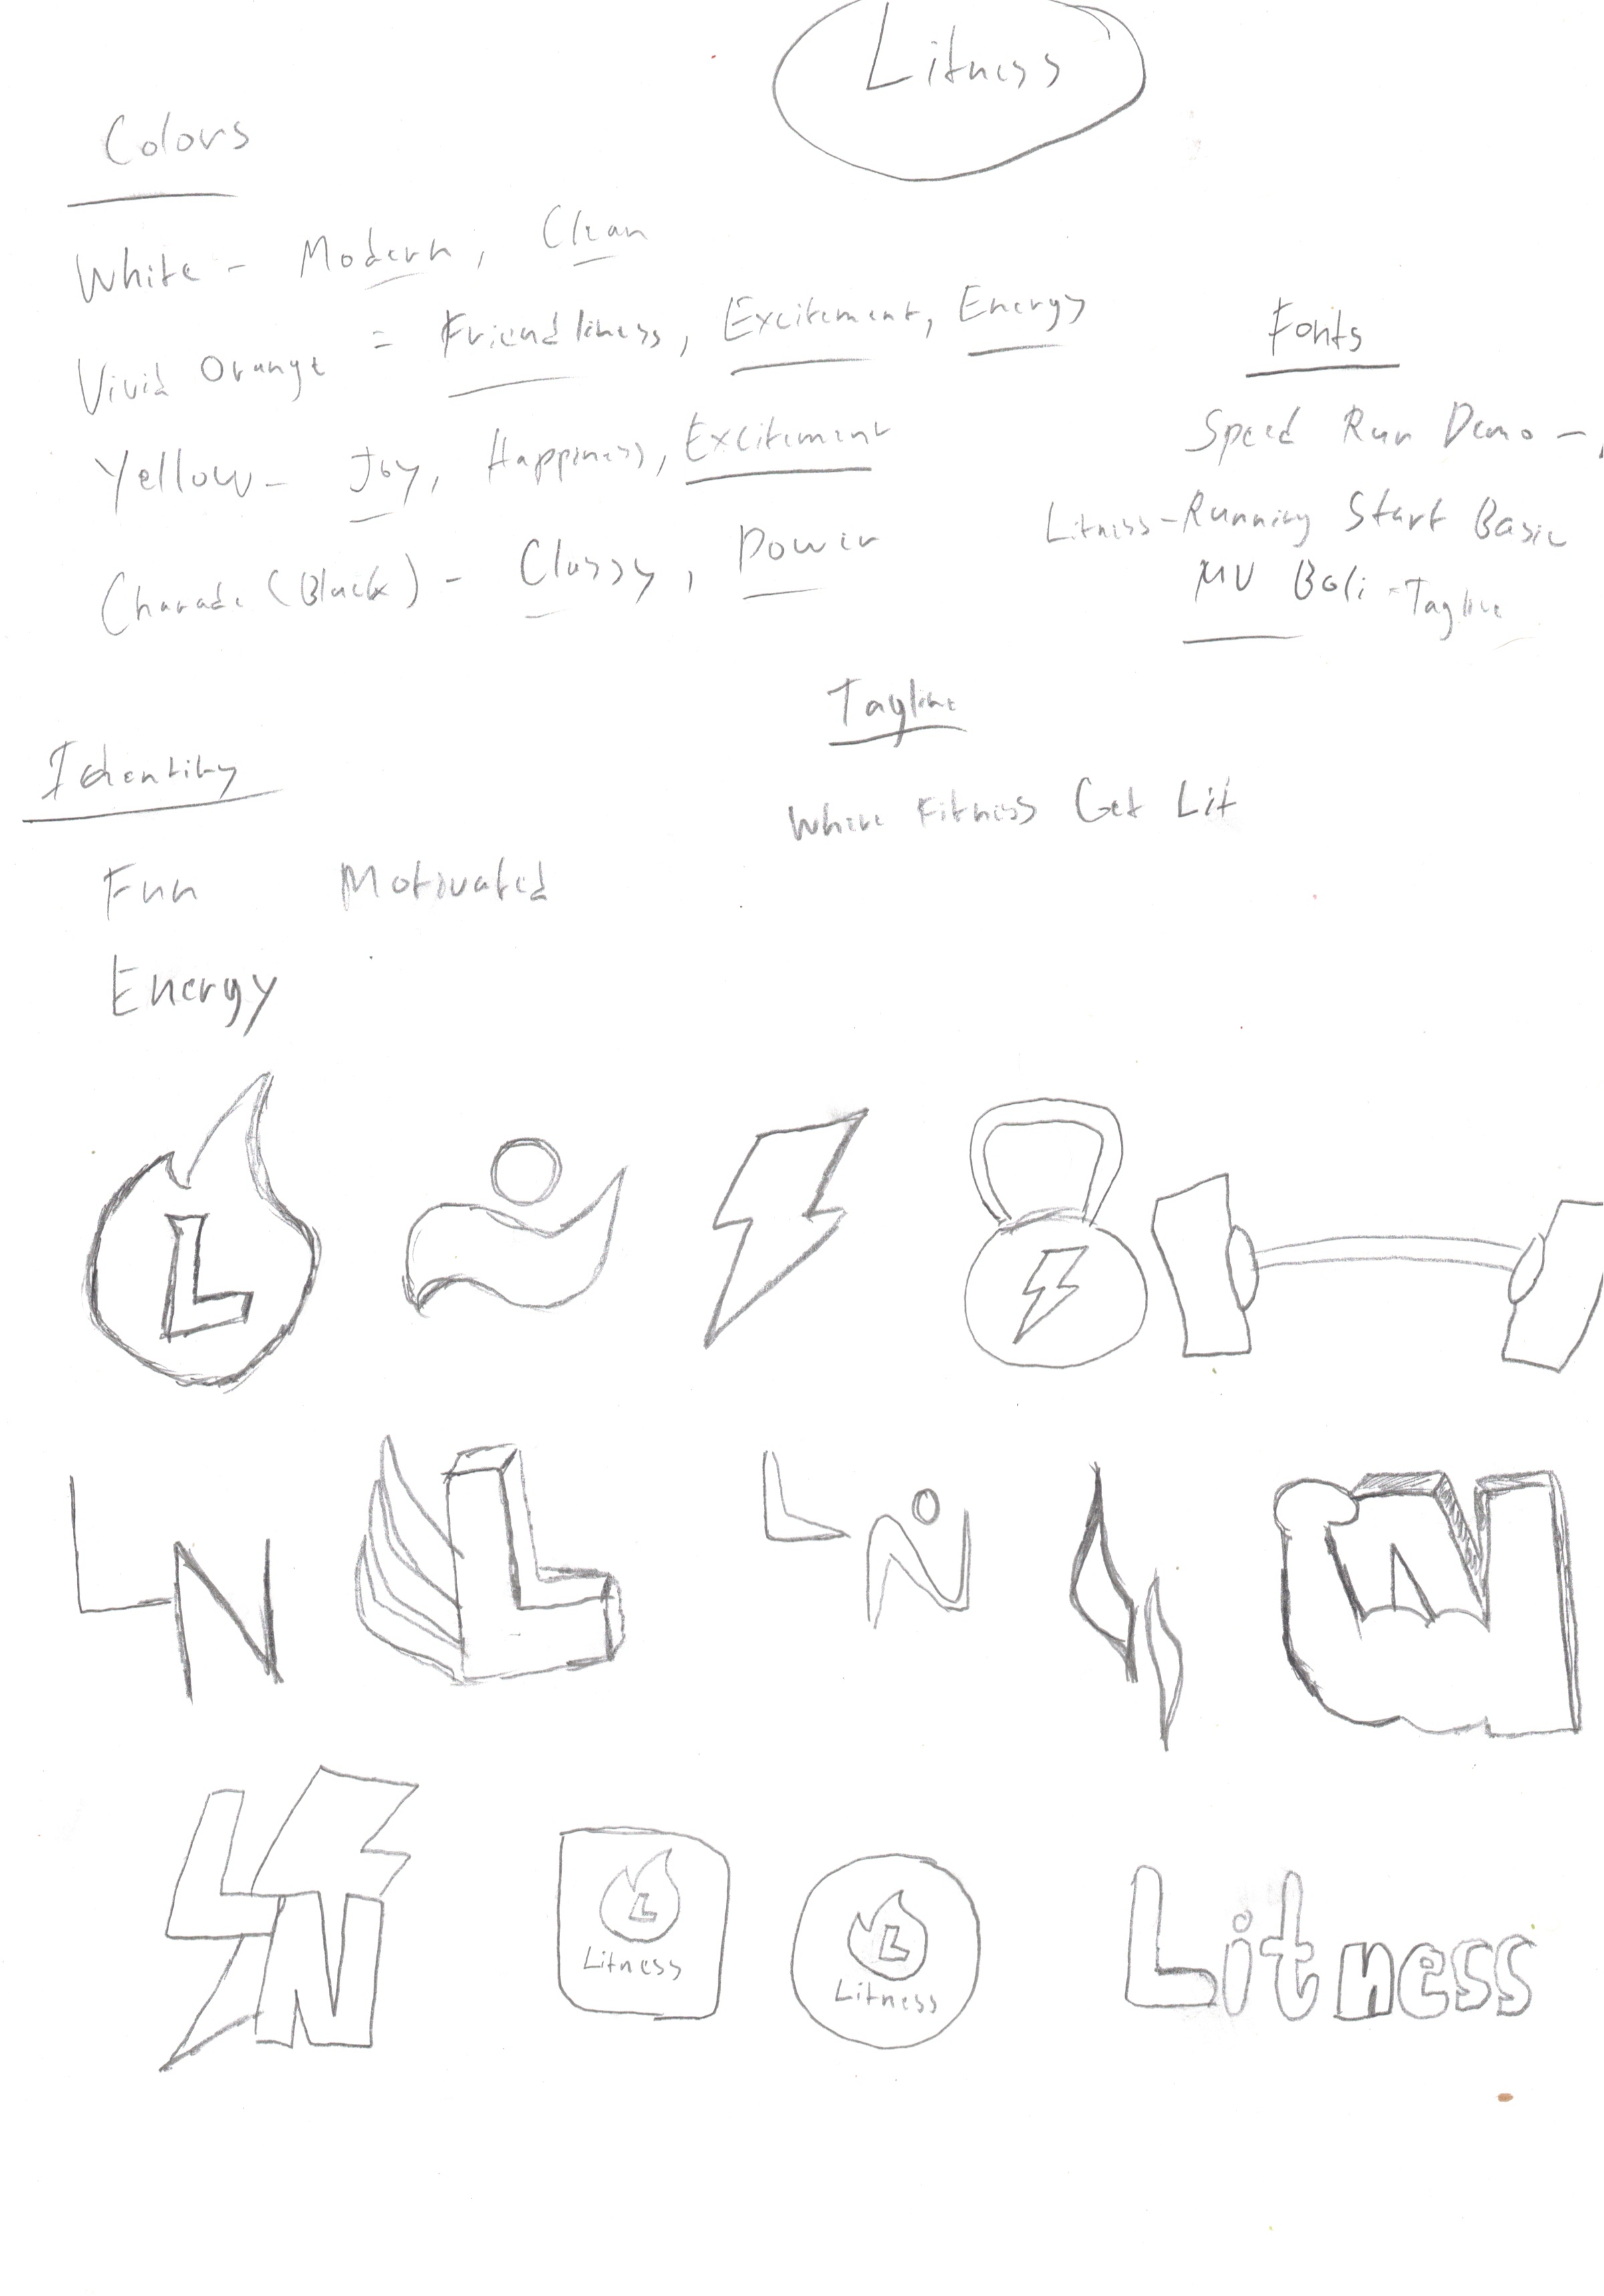 Litness
Colors
White - Modern, Clean
Vivid Orange = Friendliness, Excitement, Energy
Yellow - Joy, Happiness, Excitement
Charade (Black) - Classy, Power
Fonts
Speed Run Demo -
Litness - Running Start Basic
MV Boli - Tagline
Tagline
Where Fitness Get Lit
Identity
Fun Motivated
Energy
L
L N
L
L N
N
L N
L
Litness
L
Litness
Litness